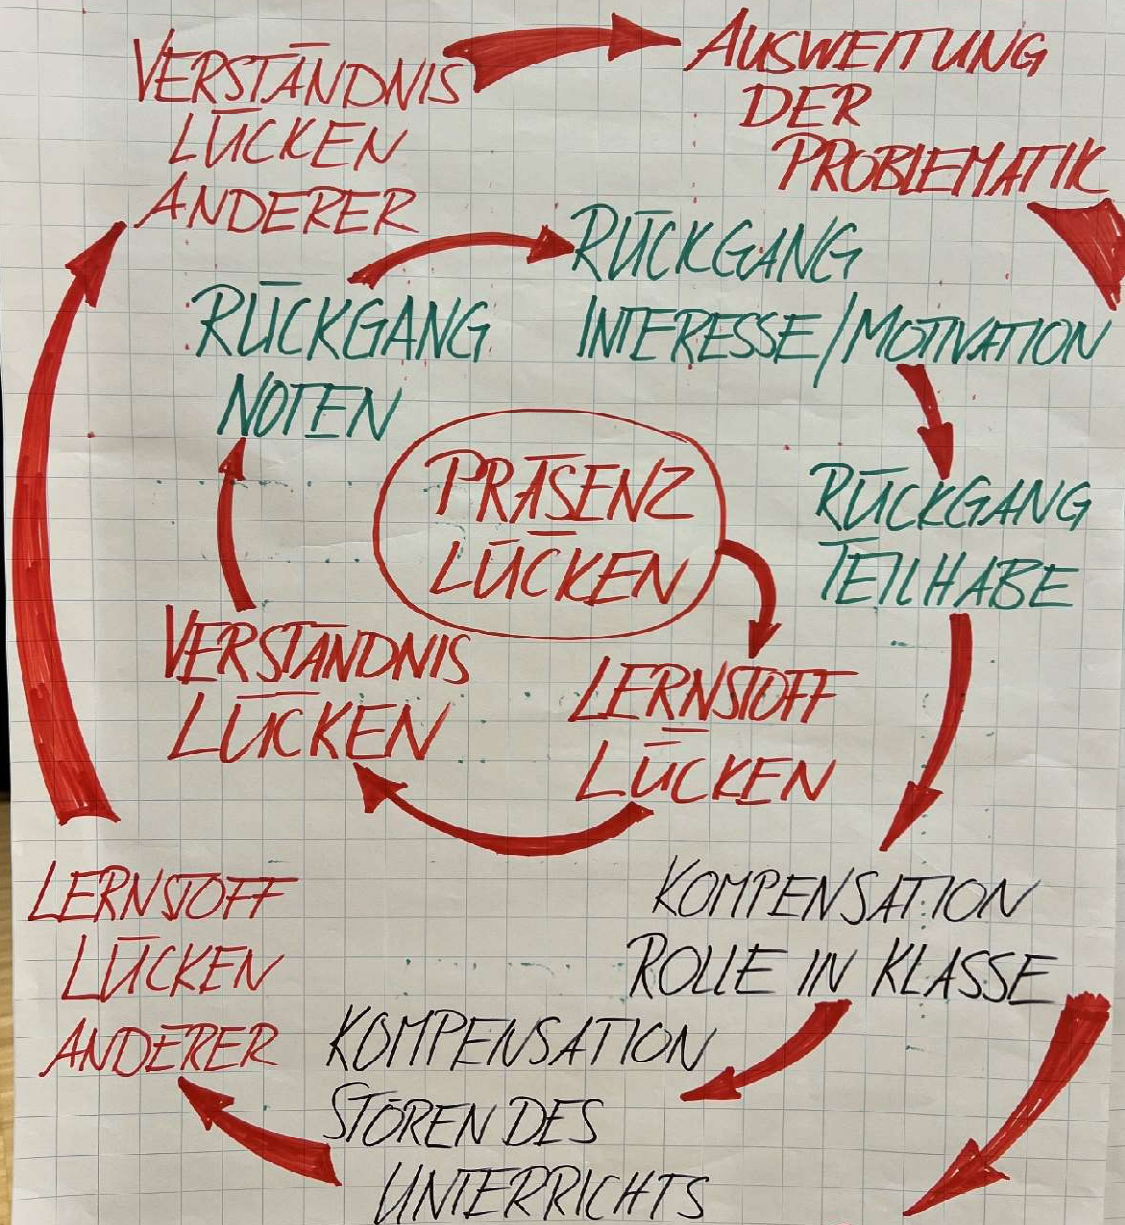 VERSTÄNDNIS
LÜCKEN
ANDERER
AUSWEITUNG
DER
PROBLEMATIK
RÜCKGANG
NOTEN
RÜCKGANG
INTERESSE/MOTIVATION
PRÄSENZ
LÜCKEN
RÜCKGANG
TEILHABE
VERSTÄNDNIS
LÜCKEN
LERNSTOFF
LÜCKEN
LERNSTOFF
LÜCKEN
ANDERER
KOMPENSATION
ROLLE IN KLASSE
KOMPENSATION
STÖREN DES
UNTERRICHTS